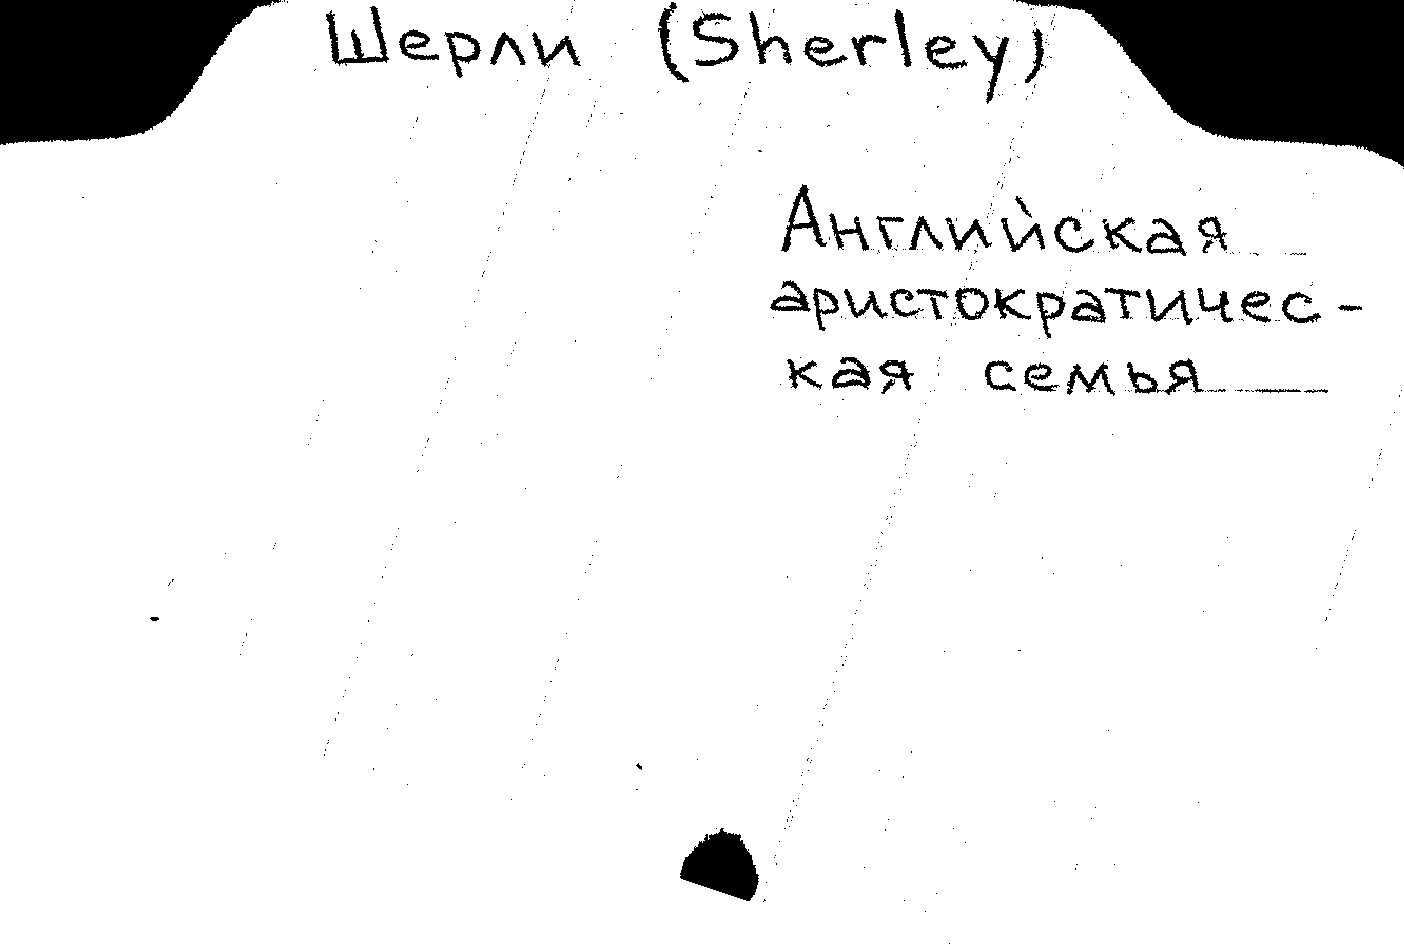 Шерли (Sherley)
Английская
аристократичес-
кая семья